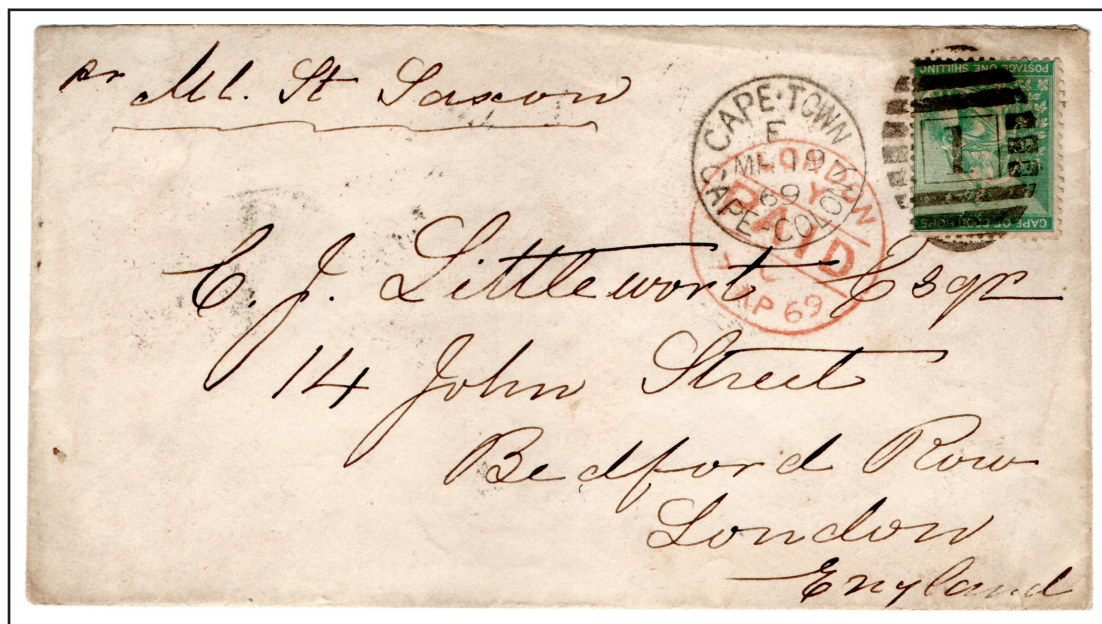 pr Ml. St Saxon
CAPE·TOWN
F
MR 19
69
CAPE-COLONY
LONDON
Y
PAID
C
AP 69
POSTAGE ONE SHILLING
1
CAPE OF GOOD HOPE
C. J. Littlewort Esqr
14 John Street
Bedford Row
London
England